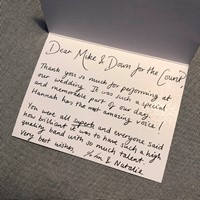 Dear Mike & Down for the Count
Thank you so much for performing at
our wedding. It was such a special
and memorable part of our day.
Hannah has the most amazing voice!
You were all superb and everyone said
how brilliant it was to have such a high
quality band with so much talent.
Very best wishes,
& Natalie